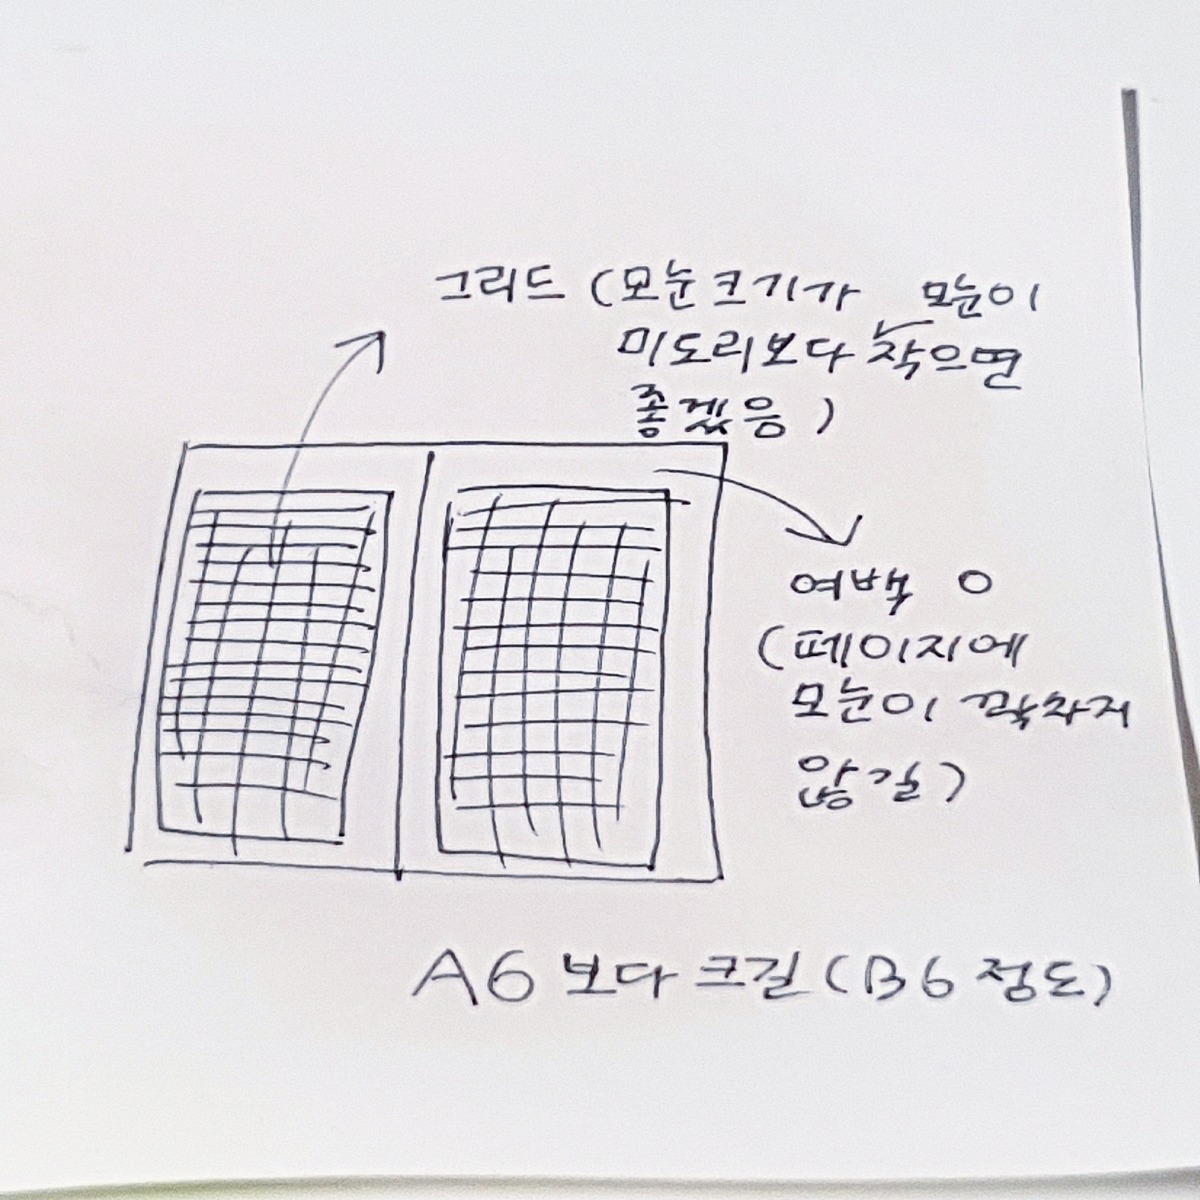 그리드 (모눈크기가 모눈이
미도리보다 작으면
좋겠음)
여백 O
(페이지에
모눈이 꽉차지
않길)
A6 보다 크길 (B6 정도)